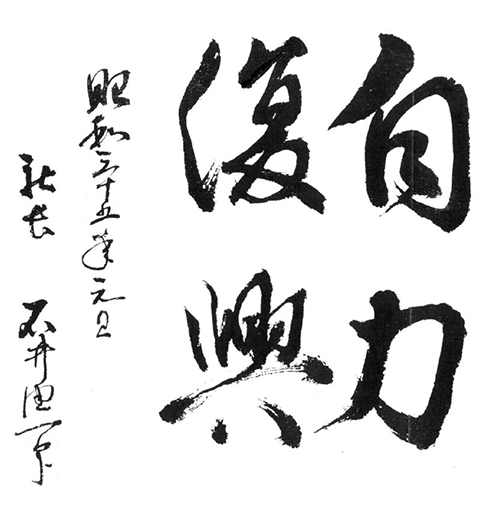 自力
復興
昭和三十五年元旦
社長 石井